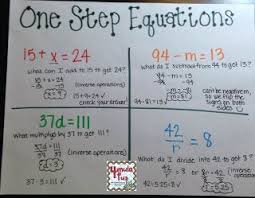 One Step Equations
15 + x = 24
What can I add to 15 to get 24?
15 + x = 24
-15 -15
(inverse operations)
x = 9
15 + 9 = 24 ✓
check your answer
94 - m = 13
What do I subtract from 94 to get 13?
94 - m = 13
(inverse operations)
can be negative,
so we flip the
signs on both
sides
94 - 81 = 13 ✓
37d = 111
What multiplied by 37 to get 111?
37d = 111
(inverse operations)
d = 3
37 · 3 = 111 ✓
42/n = 8
What do I divide into 42 to get 8?
(inverse operations)
42 ÷ 5.25 = 8 ✓